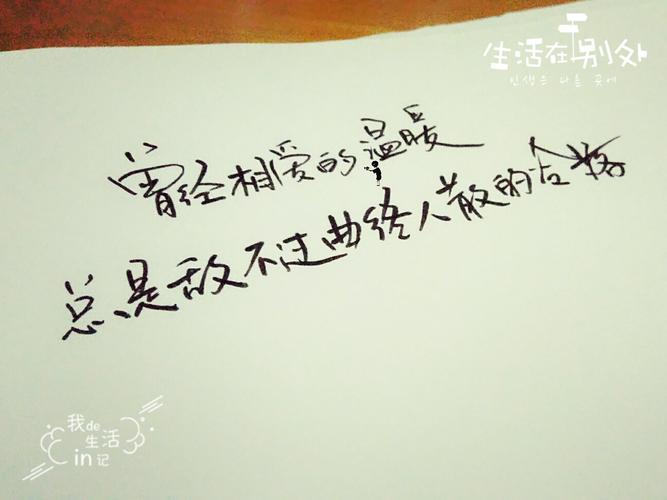 生活在别处
인생은 다른 곳에
曾经相爱的温暖
总是敌不过曲终人散的合
我de
生活
in记